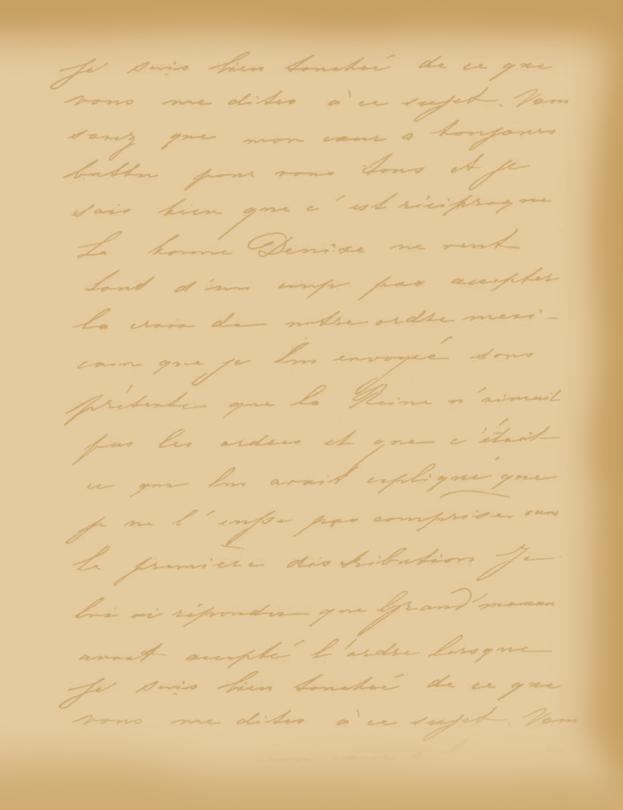 Je suis bien touché de ce que
vous me dites à ce sujet. Vous
savez que mon cœur a toujours
battu pour vous tous et je
sais bien que c'est réciproque
La bonne ne veut
pas accepter
la croix de notre ordre mexi-
cain que je lui envoyée sous
prétexte que la Reine n'aimait
pas les ordres et que c'était
ce que lui avait expliqué que
je ne l' pas comprise dans
la première distribution Je
lui ai répondu que Grand'maman
avait accepté l'ordre lorsque
Je suis bien touché de ce que
vous me dites à ce sujet. Vous